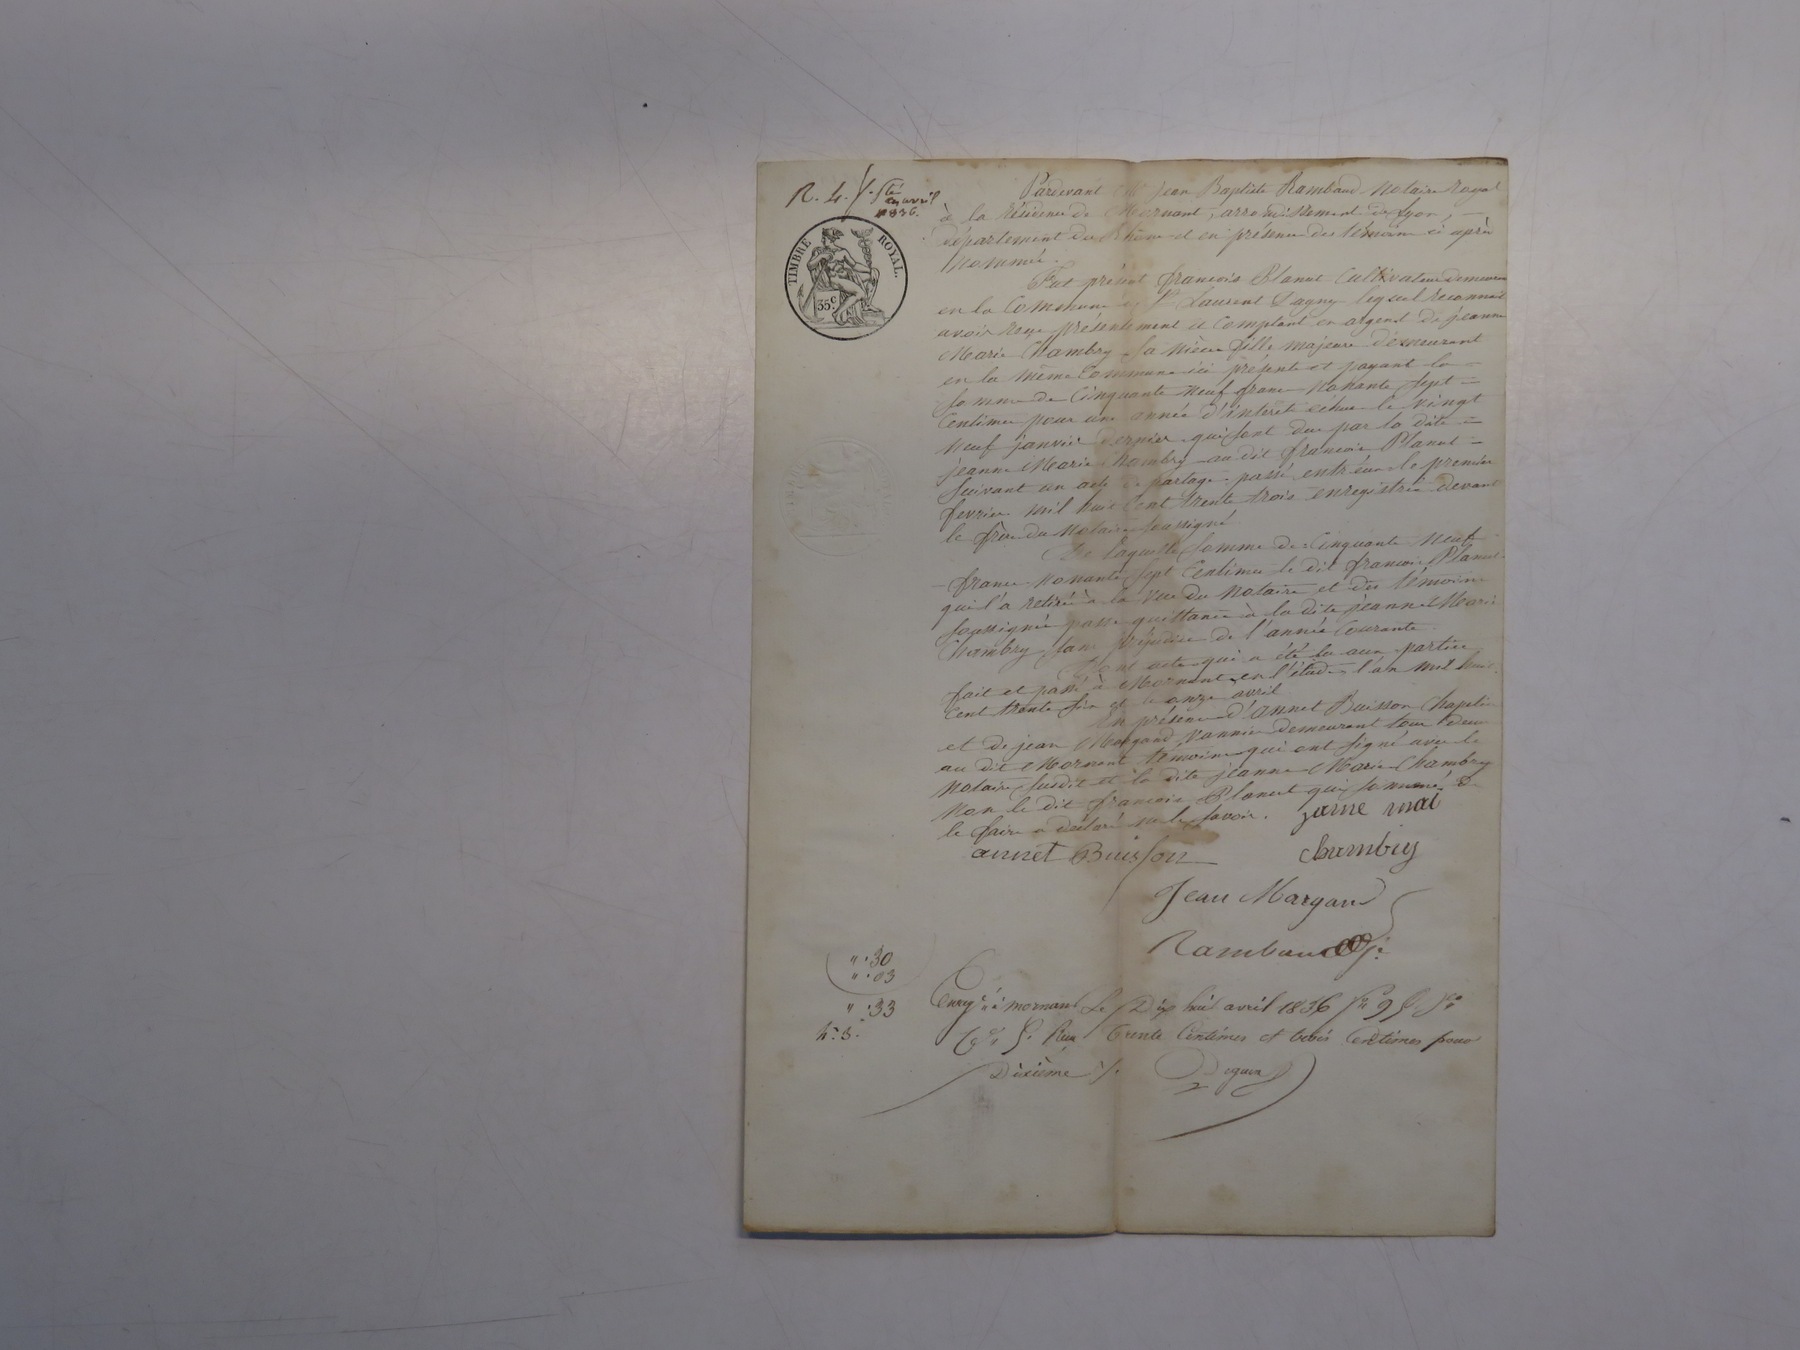 R. 4. f. Sté
11 avril
1836.
TIMBRE ROYAL.
35 c.
Pardevant Me Jean Baptiste Rambaud Notaire Royal
à la résidence de Mornant, arrondissement de Lyon, —
département du Rhône et en présence des témoins ci après
Nommés.
Fut présent françois Planut Cultivateur demeurant
en la Commune de St Laurent Dagny lequel reconnait
avoir reçu présentement et Comptant en argent de jeanne
Marie Chambry sa Nièce fille majeure demeurant
en la même Commune ici présente et payant la =
Somme de Cinquante Neuf franc Nonante Sept =
Centimes pour une année d'intérêt échue le vingt
Neuf janvier dernier qui sont dus par la dite =
jeanne Marie Chambry au dit françois Planut =
Suivant un acte de partage passé entr'eux le premier
février mil huit Cent trente trois enregistré devant
le frère du Notaire soussigné
De laquelle Somme de Cinquante Neuf
franc Nonante Sept Centimes le dit françois Planut
qui l'a retirée à la vue du Notaire et des témoins
soussignés passe quittance à la dite jeanne Marie
Chambry sans préjudice de l'année Courante.
Dont acte qui a été lu aux parties
fait et passé à Mornant en l'étude l'an mil huit
Cent trente six et le onze avril
En présence d'annet Buisson Chapelier
et de jean Margand Vannier demeurant tous deux
au dit Mornant témoins qui ont signé avec le
Notaire susdit et la dite jeanne Marie Chambry
Non le dit françois Planut qui sommé de
le faire a déclaré ne le savoir.
jame mai
annet Buisson
chambry
Jean Margand
Rambaud
" : 30
" : 03
" : 33
Enregé à mornant Le Dix huit avril 1836 fo 9
Reçu trente Centimes et trois Centimes pour
Dixième